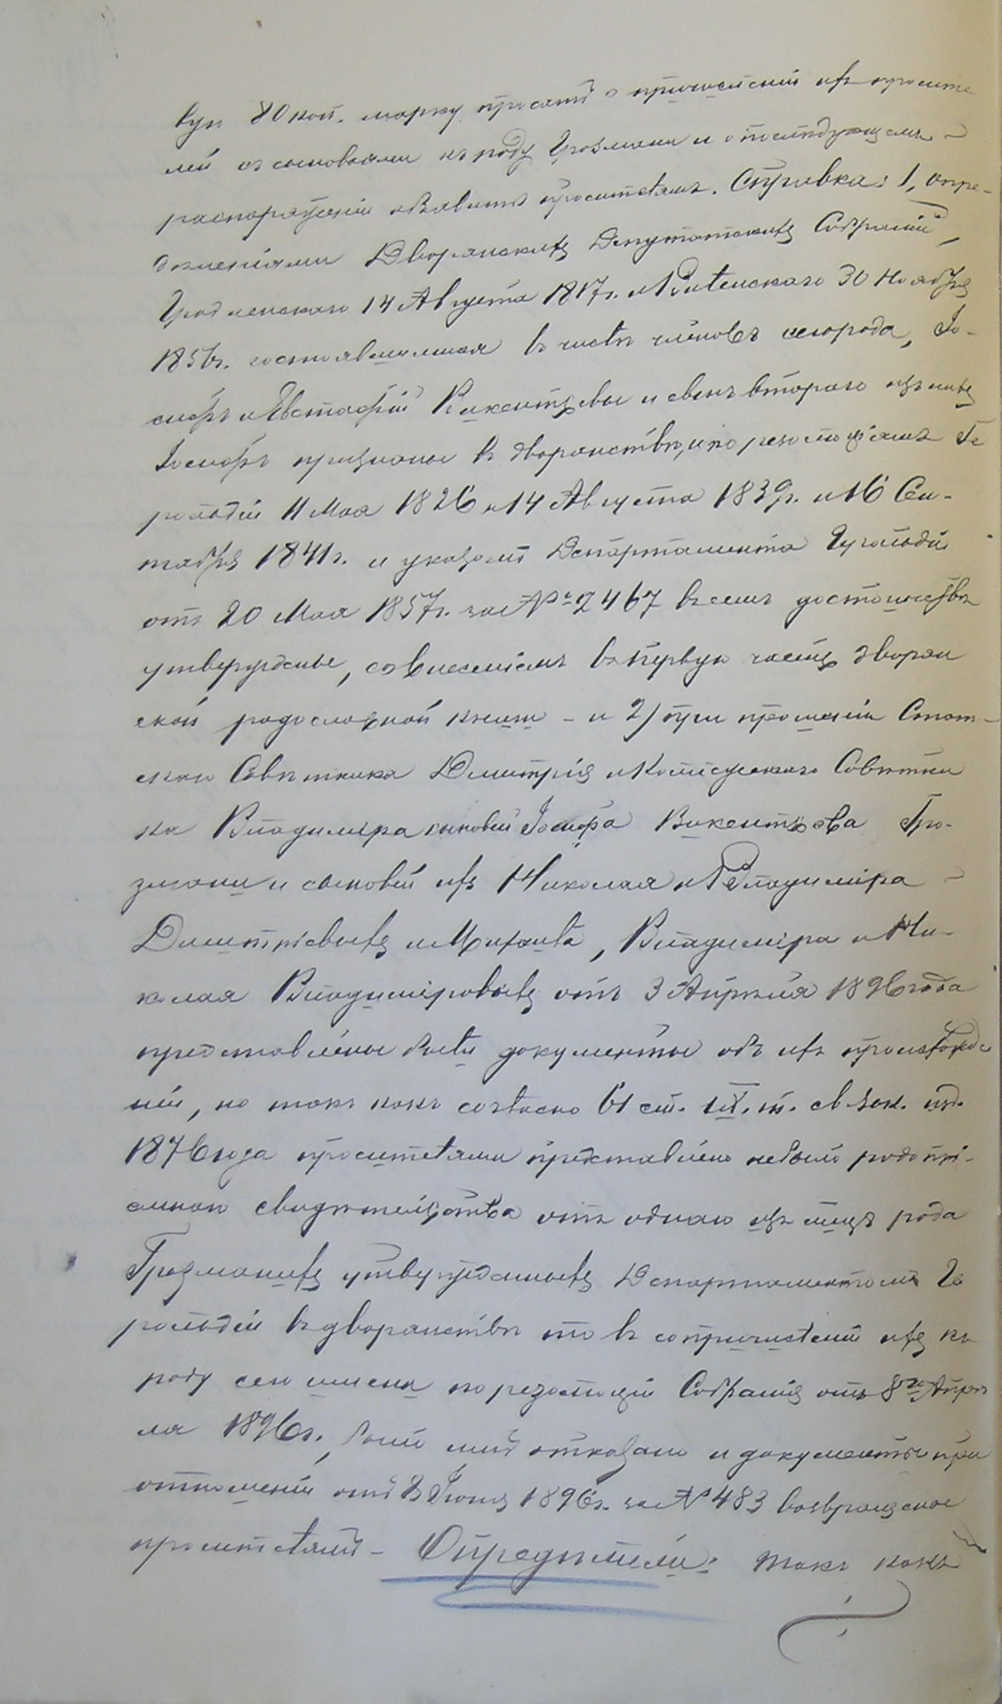 вую 80 коп. марку, просятъ о причисленіи ихъ просите
лей съ сыновьями къ роду Грозмани и о послѣдующемъ
распоряженіи объявить просителямъ. Справка: 1, опре-
дѣленіями Дворянскихъ Депутатскихъ Собраній,
Гродненскаго 14 Августа 1817 г. и Виленскаго 30 Ноября
185 г. состоявшимися въ числѣ членовъ сего рода, Іо-
сифъ и Евстафій Викентьевы и сынъ втораго изъ нихъ
Іосифъ признаны въ дворянствѣ, и по резолюціямъ Ге
рольдіи 11 Мая 1826, 14 Августа 1839 г. и 16 Сен-
тября 1841 г. и указомъ Департамента Герольдіи
отъ 20 Мая 1857 г. за № 2467 въ семъ достоинствѣ
утверждены, со внесеніемъ въ первую часть дворян
ской родословной книги - и 2) при прошеніи Стат-
скаго Совѣтника Дмитрія и Коллежскаго Совѣтни
ка Владиміра сыновей Іосифа Викентьева Гро-
змани и сыновей ихъ Николая и Владиміра
Дмитріевыхъ и Михаила, Владиміра и Ни-
колая Владиміровыхъ отъ 3 Апрѣля 1896 года
представлены были документы объ ихъ происхожде
ніи, но такъ какъ согласно 61 ст. IX т. св. зак. изд.
1876 года просителями представлено небыло родопрі-
емнаго свидѣтельства отъ одного изъ лицъ рода
Грозмановыхъ утвержденныхъ Департаментомъ Ге
рольдіи въ дворянствѣ то въ сопричисленіи ихъ къ
роду сего имени по резолюціи Собранія отъ 8го Апрѣ
ля 1896 г., было имъ отказано и документы при
отношеніи отъ 3 Іюня 1896 г. за № 483 возвращены
просителямъ - Опредѣлили: такъ какъ